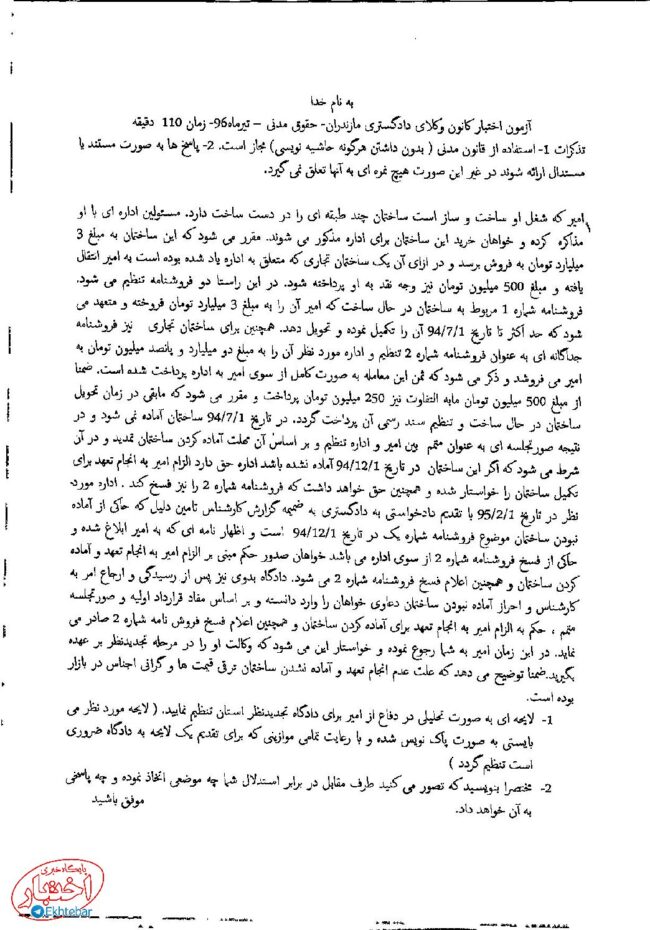 به نام خدا
آزمون اختبار کانون وکلای دادگستری مازندران- حقوق مدنی – تیرماه96- زمان 110 دقیقه
تذکرات 1- استفاده از قانون مدنی ( بدون داشتن هرگونه حاشیه نویسی) مجاز است. 2- پاسخ ها به صورت مستند یا
مستدال ارائه شوند در غیر این صورت هیچ نمره ای به آنها تعلق نمی گیرد.
امیر که شغل او ساخت و ساز است ساختمان چند طبقه ای را در دست ساخت دارد. مسئولین اداره ای با او
مذاکره کرده و خواهان خرید این ساختمان برای اداره مذکور می شوند. مقرر می شود که این ساختمان به مبلغ 3
میلیارد تومان به فروش برسد و در ازای آن یک ساختمان تجاری که متعلق به اداره یاد شده بوده است به امیر انتقال
یافته و مبلغ 500 میلیون تومان نیز وجه نقد به او پرداخته شود. در این راستا دو فروشنامه تنظیم می شود.
فروشنامه شماره 1 مربوط به ساختمان در حال ساخت که امیر آن را به مبلغ 3 میلیارد تومان فروخته و متعهد می
شود که حد اکثر تا تاریخ 94/7/1 آن را تکمیل نموده و تحویل دهد. همچنین برای ساختمان تجاری نیز فروشنامه
جداگانه ای به عنوان فروشنامه شماره 2 تنظیم و اداره مورد نظر آن را به مبلغ دو میلیارد و پانصد میلیون تومان به
امیر می فروشد و ذکر می شود که ثمن این معامله به صورت کامل از سوی امیر به اداره پرداخت شده است. ضمنا
از مبلغ 500 میلیون تومان مابه التفاوت نیز 250 میلیون تومان پرداخت و مقرر می شود که مابقی در زمان تحویل
ساختمان در حال ساخت و تنظیم سند رسمی آن پرداخت گردد. در تاریخ 94/7/1 ساختمان آماده نمی شود و در
نتیجه صورتجلسه ای به عنوان متمم بین امیر و اداره تنظیم و بر اساس آن مهلت آماده کردن ساختمان تمدید و در آن
شرط می شود که اگر این ساختمان در تاریخ 94/12/1 آماده نشده باشد اداره حق دارد الزام امیر به انجام تعهد برای
تکمیل ساختمان را خواستار شده و همچنین حق خواهد داشت که فروشنامه شماره 2 را نیز فسخ کند . اداره مورد
نظر در تاریخ 95/2/1 با تقدیم دادخواستی به دادگستری به ضمیمه گزارش کارشناس تامین دلیل که حاکی از آماده
نبودن ساختمان موضوع فروشنامه شماره یک در تاریخ 94/12/1 است و اظهار نامه ای که به امیر ابلاغ شده و
حاکی از فسخ فروشنامه شماره 2 از سوی اداره می باشد خواهان صدور حکم مبنی بر الزام امیر به انجام تعهد و آماده
کردن ساختمان و همچنین اعلام فسخ فروشنامه شماره 2 می شود. دادگاه بدوی نیز پس از رسیدگی و ارجاع امر به
کارشناس و احراز آماده نبودن ساختمان دعاوی خواهان را وارد دانسته و بر اساس مفاد قرارداد اولیه و صورتجلسه
متمم ، حکم به الزام امیر به انجام تعهد برای آماده کردن ساختمان و همچنین اعلام فسخ فروش نامه شماره 2 صادر می
نماید. در این زمان امیر به شما رجوع نموده و خواستار این می شود که وکالت او را در مرحله تجدیدنظر بر عهده
بگیرید.ضمنا توضیح می دهد که علت عدم انجام تعهد و آماده نشدن ساختمان ترقی قیمت ها و گرانی اجناس در بازار
بوده است.
1- لایحه ای به صورت تحلیلی در دفاع از امیر برای دادگاه تجدیدنظر استان تنظیم نمایید. ( لایحه مورد نظر می
بایستی به صورت پاک نویس شده و با رعایت تمامی موازینی که برای تقدیم یک لایحه به دادگاه ضروری
است تنظیم گردد )
2- مختصرا بنویسید که تصور می کنید طرف مقابل در برابر استدلال شما چه موضعی اتخاذ نموده و چه پاسخی
به آن خواهد داد. موفق باشید
پایگاه خبری
اختبار
Ekhtebar